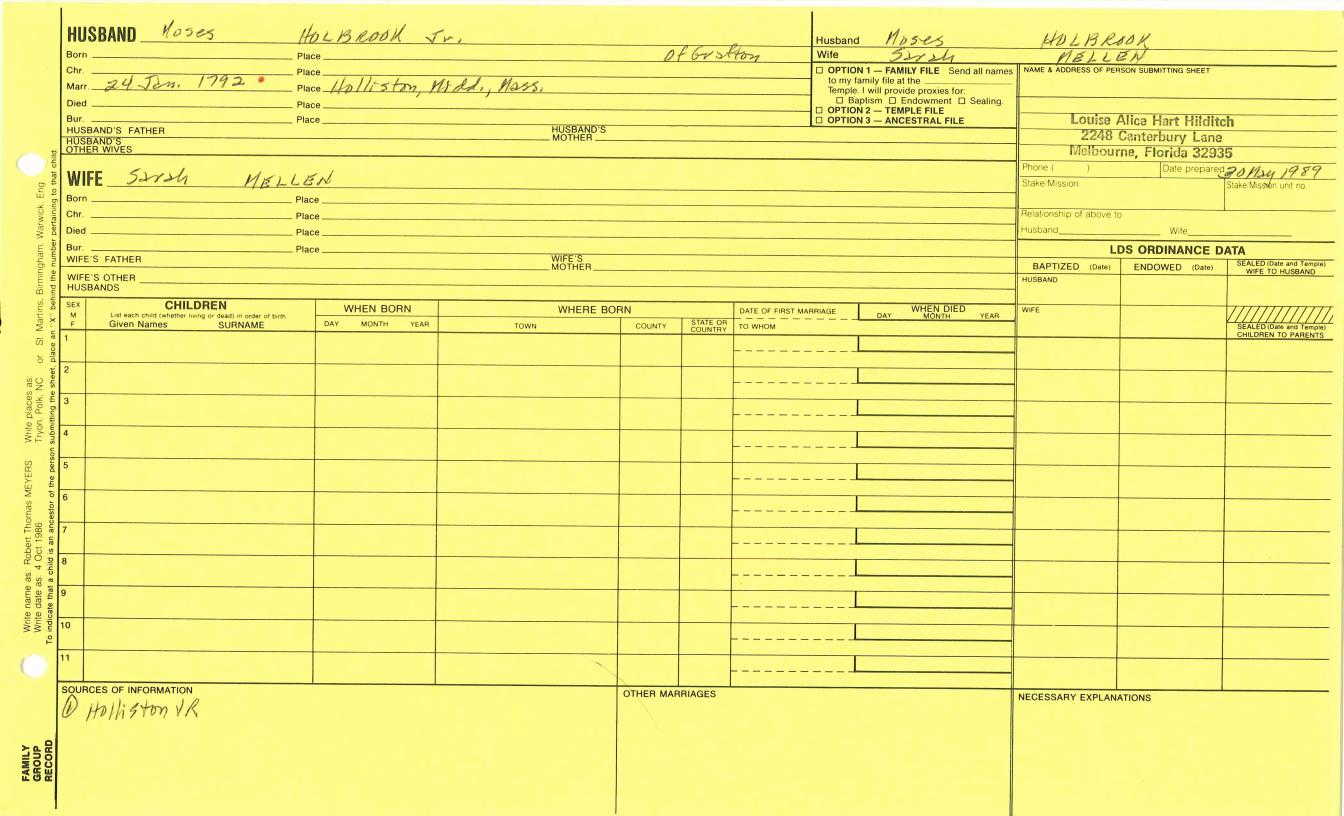 HUSBAND Moses HOLBROOK Jr.
Born Place of Grafton
Chr. Place
Marr. 24 Jan. 1792 Place Holliston, Midd., Mass.
Died Place
Bur. Place
HUSBAND'S FATHER HUSBAND'S MOTHER
HUSBAND'S OTHER WIVES
Husband Moses HOLBROOK
Wife Sarah MELLEN
☐ OPTION 1 — FAMILY FILE Send all names
to my family file at the
Temple. I will provide proxies for:
☐ Baptism ☐ Endowment ☐ Sealing.
☐ OPTION 2 — TEMPLE FILE
☐ OPTION 3 — ANCESTRAL FILE
NAME & ADDRESS OF PERSON SUBMITTING SHEET
Louise Alice Hart Hilditch
2248 Canterbury Lane
Melbourne, Florida 32935
Phone ( ) Date prepared 30 May 1989
Stake/Mission Stake/Mission unit no.
Relationship of above to
Husband Wife
WIFE Sarah MELLEN
Born Place
Chr. Place
Died Place
Bur. Place
WIFE'S FATHER WIFE'S MOTHER
WIFE'S OTHER
HUSBANDS
LDS ORDINANCE DATA
BAPTIZED (Date) ENDOWED (Date) SEALED (Date and Temple)
WIFE TO HUSBAND
HUSBAND
WIFE
SEALED (Date and Temple)
CHILDREN TO PARENTS
SEX
M
F
CHILDREN
List each child (whether living or dead) in order of birth
Given Names SURNAME
WHEN BORN
DAY MONTH YEAR
WHERE BORN
TOWN COUNTY STATE OR COUNTRY
DATE OF FIRST MARRIAGE
TO WHOM
WHEN DIED
DAY MONTH YEAR
1
2
3
4
5
6
7
8
9
10
11
SOURCES OF INFORMATION
① Holliston VR
OTHER MARRIAGES
NECESSARY EXPLANATIONS
Write name as: Robert Thomas MEYERS Write places as:
Write date as: 4 Oct 1986 Tryon, Polk, NC or St. Martins, Birmingham, Warwick, Eng
To indicate that a child is an ancestor of the person submitting the sheet, place an "X" behind the number pertaining to that child.
FAMILY
GROUP
RECORD